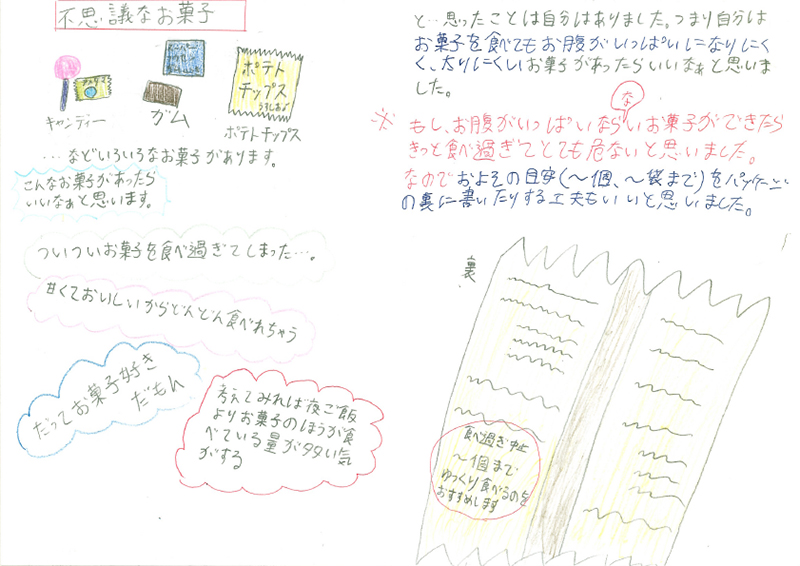 不思議なお菓子
ポテト
チップス
うすしお
キャンディー
ガム
ポテトチップス
…などいろいろなお菓子があります。
こんなお菓子があったら
いいなぁと思います。
ついついお菓子を食べ過ぎてしまった…。
甘くておいしいからどんどん食べれちゃう
だってお菓子好き
だもん
考えてみれば夜ご飯
よりお菓子のほうが食
べている量が多い気
がする
と…思ったことは自分はありました。つまり自分は
お菓子を食べてもお腹がいっぱいになりにく
く、太りにくいお菓子があったらいいなぁと思いま
した。
※ もし、お腹がいっぱいならないお菓子ができたら
な
きっと食べ過ぎてとても危ないと思いました。
なのでおよその目安(〜個、〜袋まで)をパッケージ
の裏に書いたりする工夫もいいと思いました。
裏
食べ過ぎ中止
〜個まで
ゆっくり食べるのを
おすすめします